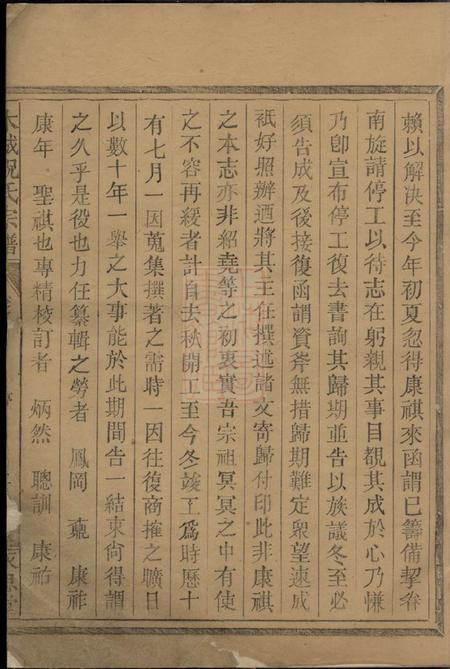 賴以解決至今年初夏忽得康祺來函謂已籌備挈眷
南旋請停工以待志在躬親其事目覩其成於心乃慊
乃卽宣布停工復去書詢其歸期並告以族議冬至必
須告成及後接復函謂資斧無措歸期難定衆望速成
祇好照辦迺將其主任撰述諸文寄歸付印此非康祺
之本志亦非紹堯等之初衷實吾宗祖冥冥之中有使
之不容再緩者計自去秋開工至今冬竣工爲時歷十
有七月一因蒐集撰著之需時一因往復商搉之曠日
以數十年一舉之大事能於此期間告一結束尙得謂
之久乎是役也力任纂輯之勞者 鳳岡 蕘 康祚
康年 聖祺也專精校訂者 炳然 聰訓 康祐
氏宗譜